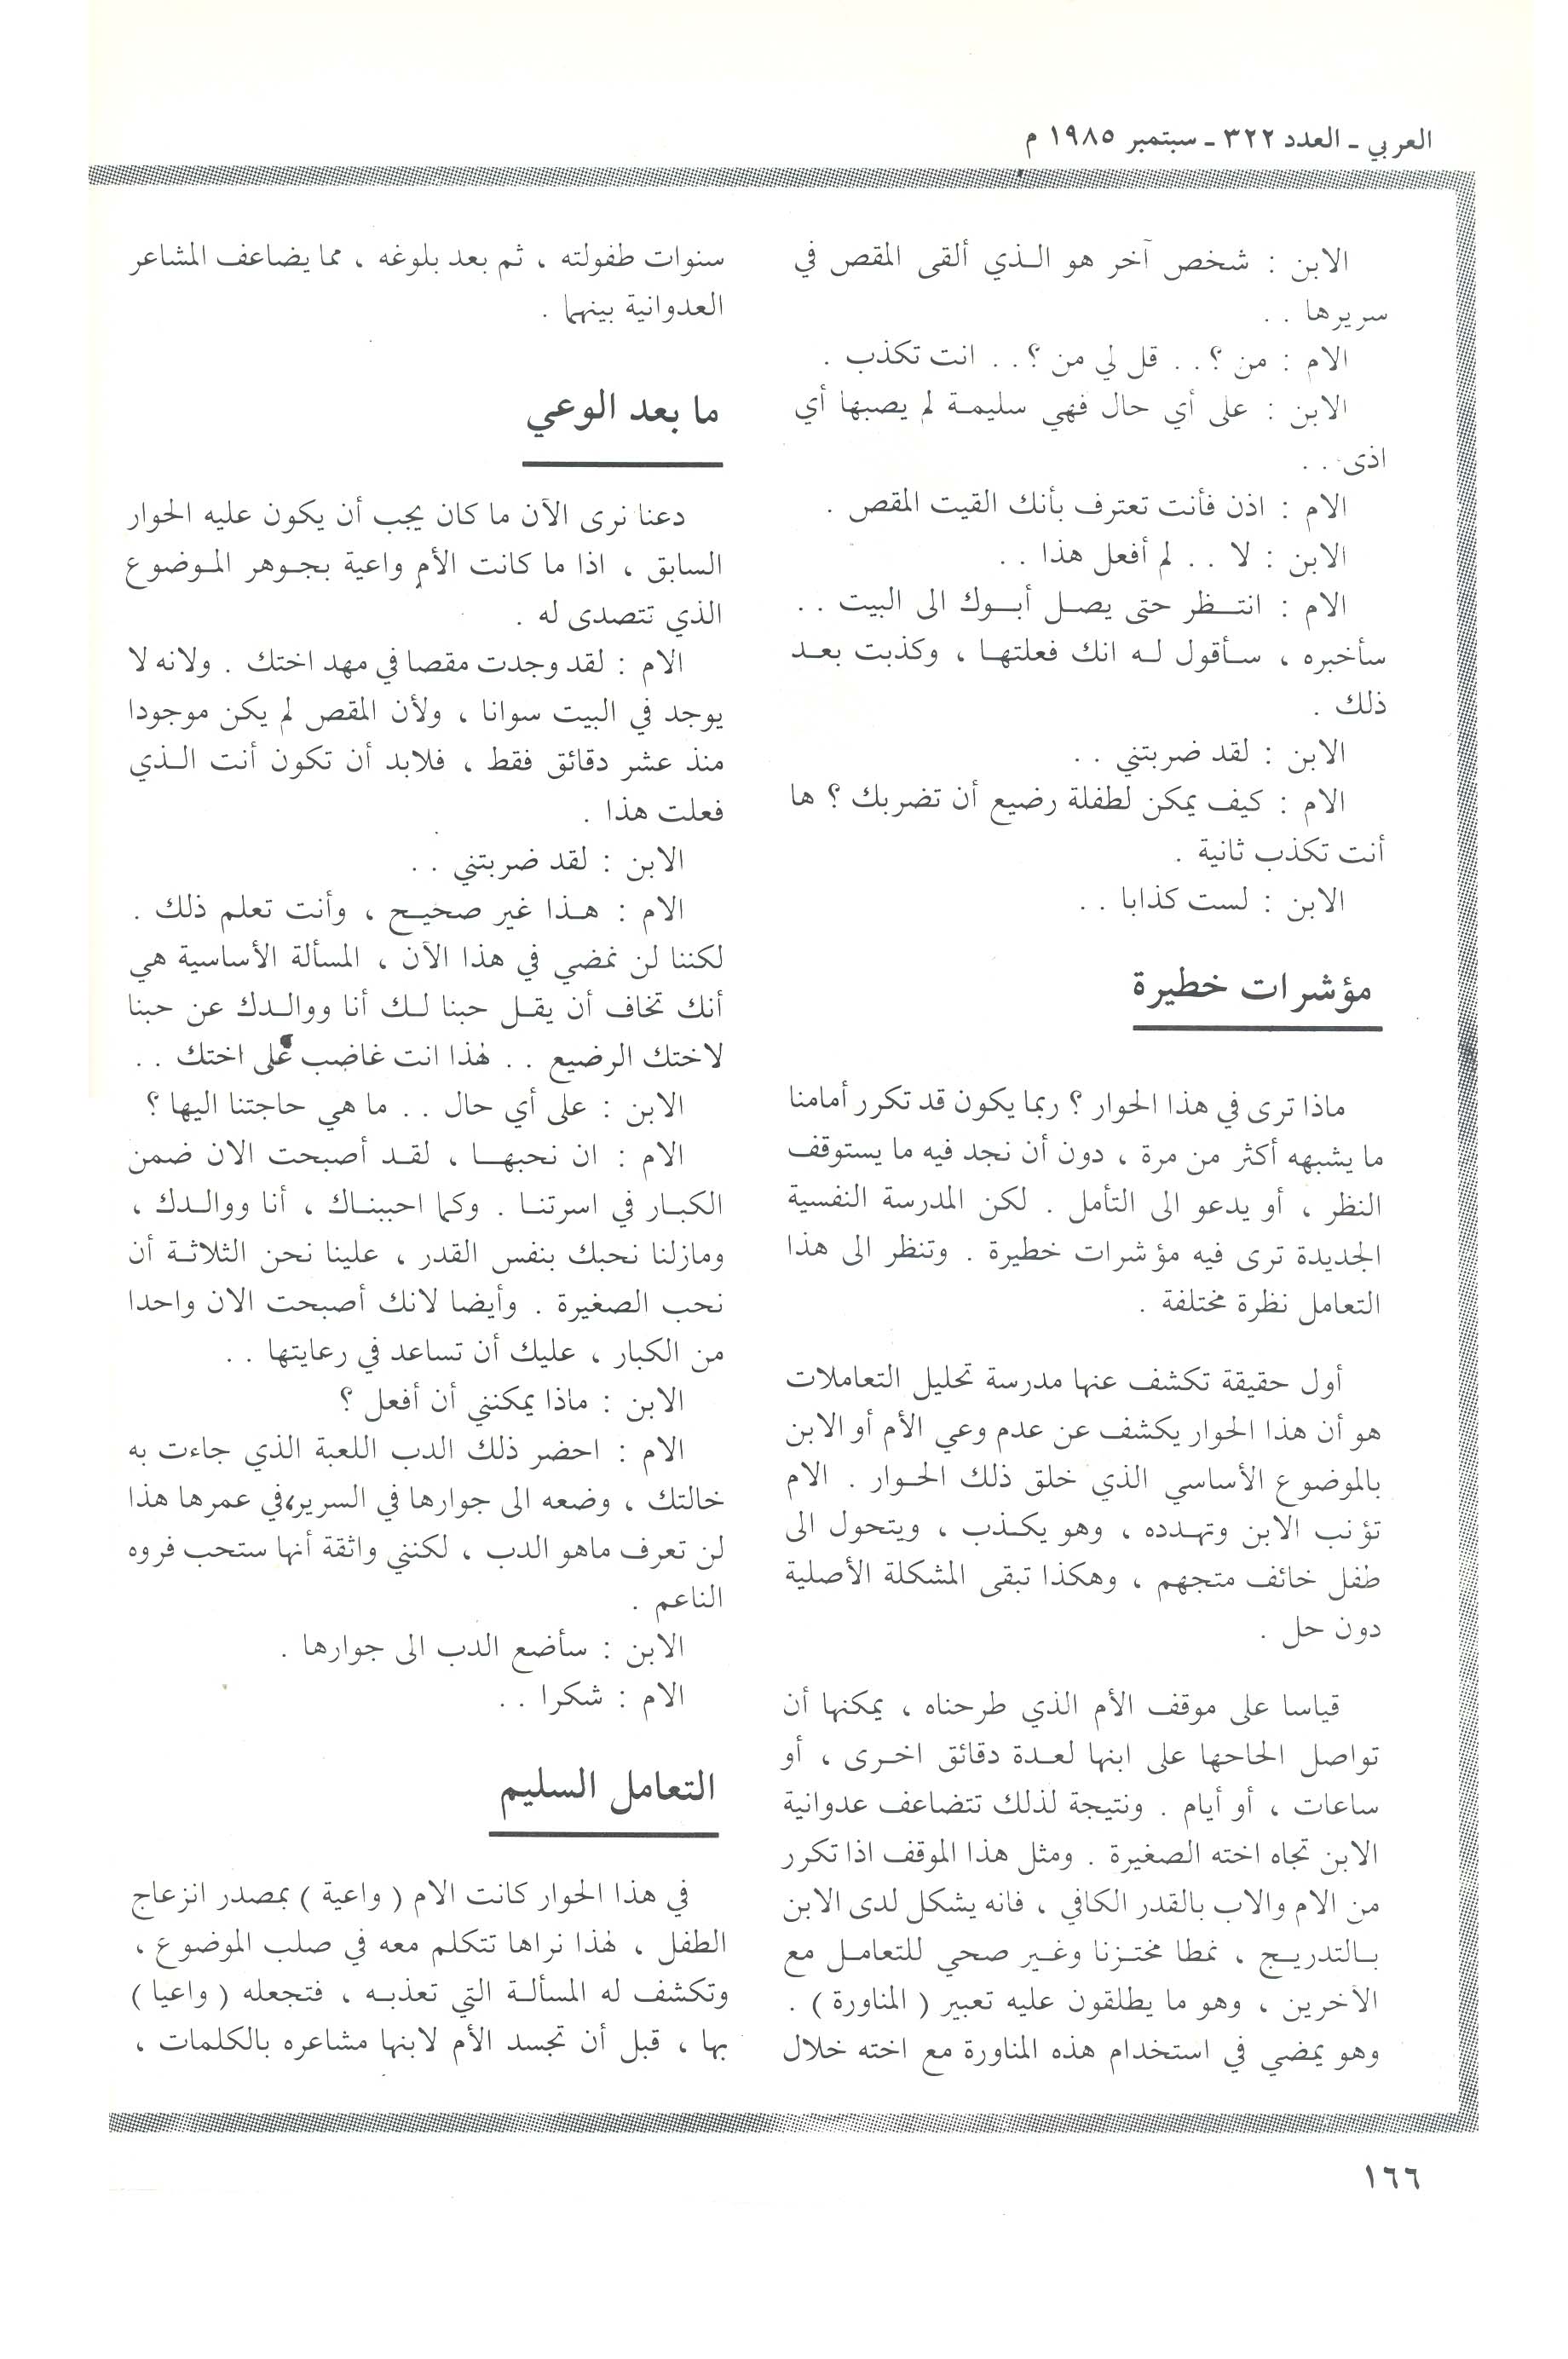 العربي ـ العدد ٣٢٢ ـ سبتمبر ١٩٨٥ م
الابن : شخص آخر هو الـذي ألقى المقص في
سريرها . .
الام : من ؟ . . قل لي من ؟ . . انت تكذب .
الابن : على أي حال فهي سليمـة لم يصبها أي
اذى . .
الام : اذن فأنت تعترف بأنك القيت المقص .
الابن : لا . . لم أفعل هذا . .
الام : انتـظر حتى يصـل أبـوك الى البيت . .
سأخبره ، سـأقول لـه انك فعلتهـا ، وكذبت بعـد
ذلك .
الابن : لقد ضربتني . .
الام : كيف يمكن لطفلة رضيع أن تضربك ؟ ها
أنت تكذب ثانية .
الابن : لست كذابا . .
مؤشرات خطيرة
ماذا ترى في هذا الحوار ؟ ربما يكون قد تكرر أمامنا
ما يشبهه أكثر من مرة ، دون أن نجد فيه ما يستوقف
النظر ، أو يدعو الى التأمل . لكن المدرسة النفسية
الجديدة ترى فيه مؤشرات خطيرة . وتنظر الى هذا
التعامل نظرة مختلفة .
أول حقيقة تكشف عنها مدرسة تحليل التعاملات
هو أن هذا الحوار يكشف عن عدم وعي الأم أو الابن
بالموضوع الأساسي الذي خلق ذلك الحـوار . الام
تؤنب الابن وتهـدده ، وهو يكـذب ، ويتحول الى
طفل خائف متجهم ، وهكذا تبقى المشكلة الأصلية
دون حل .
قياسا على موقف الأم الذي طرحناه ، يمكنها أن
تواصل الحاحها على ابنها لعـدة دقائق اخـرى ، أو
ساعات ، أو أيام . ونتيجة لذلك تتضاعف عدوانية
الابن تجاه اخته الصغيرة . ومثل هذا الموقف اذا تكرر
من الام والاب بالقدر الكافي ، فانه يشكل لدى الابن
بـالتدريـج ، نمطا مختـزنا وغـير صحي للتعامـل مع
الآخرين ، وهو ما يطلقون عليه تعبير ( المناورة ) .
وهو يمضي في استخدام هذه المناورة مع اخته خلال
سنوات طفولته ، ثم بعد بلوغه ، مما يضاعف المشاعر
العدوانية بينهما .
ما بعد الوعي
دعنا نرى الآن ما كان يجب أن يكون عليه الحوار
السابق ، اذا ما كانت الأم واعية بجـوهر المـوضوع
الذي تتصدى له .
الام : لقد وجدت مقصا في مهد اختك . ولانه لا
يوجد في البيت سوانا ، ولأن المقص لم يكن موجودا
منذ عشر دقائق فقط ، فلابد أن تكون أنت الـذي
فعلت هذا .
الابن : لقد ضربتني . .
الام : هـذا غير صحيـح ، وأنت تعلم ذلك .
لكننا لن نمضي في هذا الآن ، المسألة الأساسية هي
أنك تخاف أن يقـل حبنا لـك أنا ووالـدك عن حبنا
لاختك الرضيع . . لهذا انت غاضب على اختك . .
الابن : على أي حال . . ما هي حاجتنا اليها ؟
الام : ان نحبهـا ، لقـد أصبحت الان ضمن
الكبـار في اسرتنـا . وكما احببنـاك ، أنا ووالـدك ،
ومازلنا نحبك بنفس القدر ، علينا نحن الثلاثـة أن
نحب الصغيرة . وأيضا لانك أصبحت الان واحدا
من الكبار ، عليك أن تساعد في رعايتها . .
الابن : ماذا يمكنني أن أفعل ؟
الام : احضر ذلك الدب اللعبة الذي جاءت به
خالتك ، وضعه الى جوارها في السرير، في عمرها هذا
لن تعرف ماهو الدب ، لكنني واثقة أنها ستحب فروه
الناعم .
الابن : سأضع الدب الى جوارها .
الام : شكرا . .
التعامل السليم
في هذا الحوار كانت الام ( واعية ) بمصدر انزعاج
الطفل ، لهذا نراها تتكلم معه في صلب الموضوع ،
وتكشف له المسألـة التي تعذبـه ، فتجعله ( واعيا )
بها ، قبل أن تجسد الأم لابنها مشاعره بالكلمات ،
١٦٦